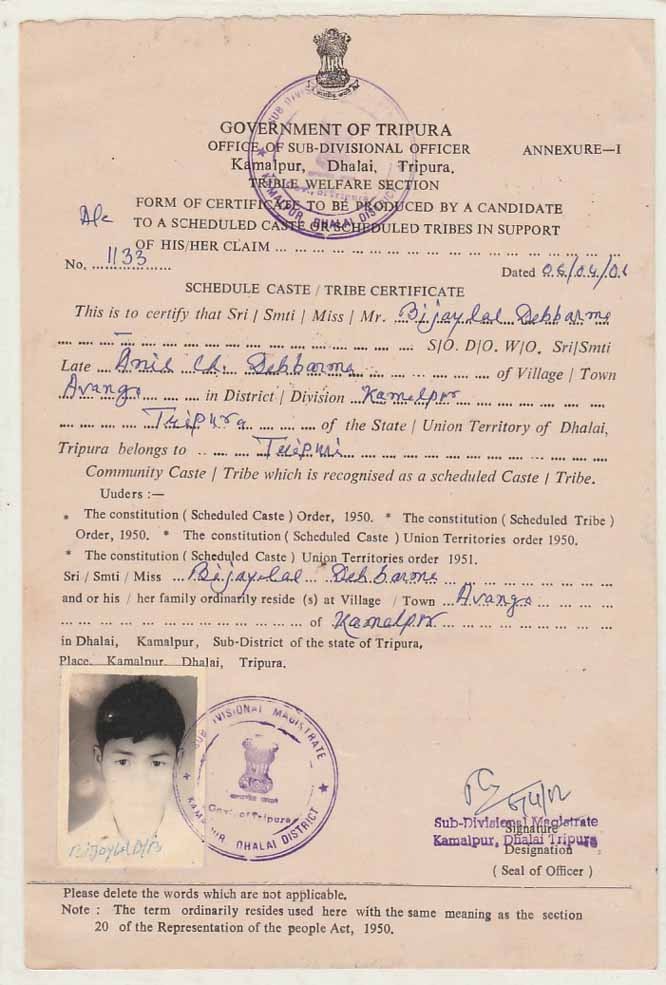 GOVERNMENT OF TRIPURA
OFFICE OF SUB-DIVISIONAL OFFICER ANNEXURE—I
Kamalpur, Dhalai, Tripura.
TRIBLE WELFARE SECTION
FORM OF CERTIFICATE TO BE PRODUCED BY A CANDIDATE
TO A SCHEDULED CASTE OR SCHEDULED TRIBES IN SUPPORT
OF HIS/HER CLAIM
No. 1133
Dated
SCHEDULE CASTE / TRIBE CERTIFICATE
This is to certify that Sri / Smti / Miss / Mr. Bijaylal Debbarma
S/O. D/O. W/O. Sri/Smti
Late Anil Ch. Debbarma of Village / Town
Avanga in District / Division Kamalpur
Tripura of the State / Union Territory of Dhalai,
Tripura belongs to Tripuri
Community Caste / Tribe which is recognised as a scheduled Caste / Tribe.
Uuders :—
* The constitution ( Scheduled Caste ) Order, 1950. * The constitution ( Scheduled Tribe )
Order, 1950. * The constitution ( Scheduled Caste ) Union Territories order 1950.
* The constitution ( Scheduled Caste ) Union Territories order 1951.
Sri / Smti / Miss Bijaylal Debbarma
and or his / her family ordinarily reside (s) at Village / Town Avanga
of Kamalpur
in Dhalai, Kamalpur, Sub-District of the state of Tripura,
Place. Kamalpur Dhalai, Tripura.
SUB DIVISIONAL MAGISTRATE
Govt. of Tripura
KAMALPUR, DHALAI DISTRICT
Sub-Divisional Magistrate
Signature
Kamalpur, Dhalai Tripura
Designation
( Seal of Officer )
Please delete the words which are not applicable.
Note : The term ordinarily resides used here with the same meaning as the section
20 of the Representation of the people Act, 1950.